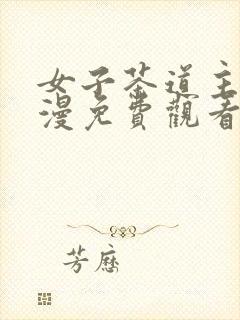 女子茶道主
漫免費觀看
芳歷